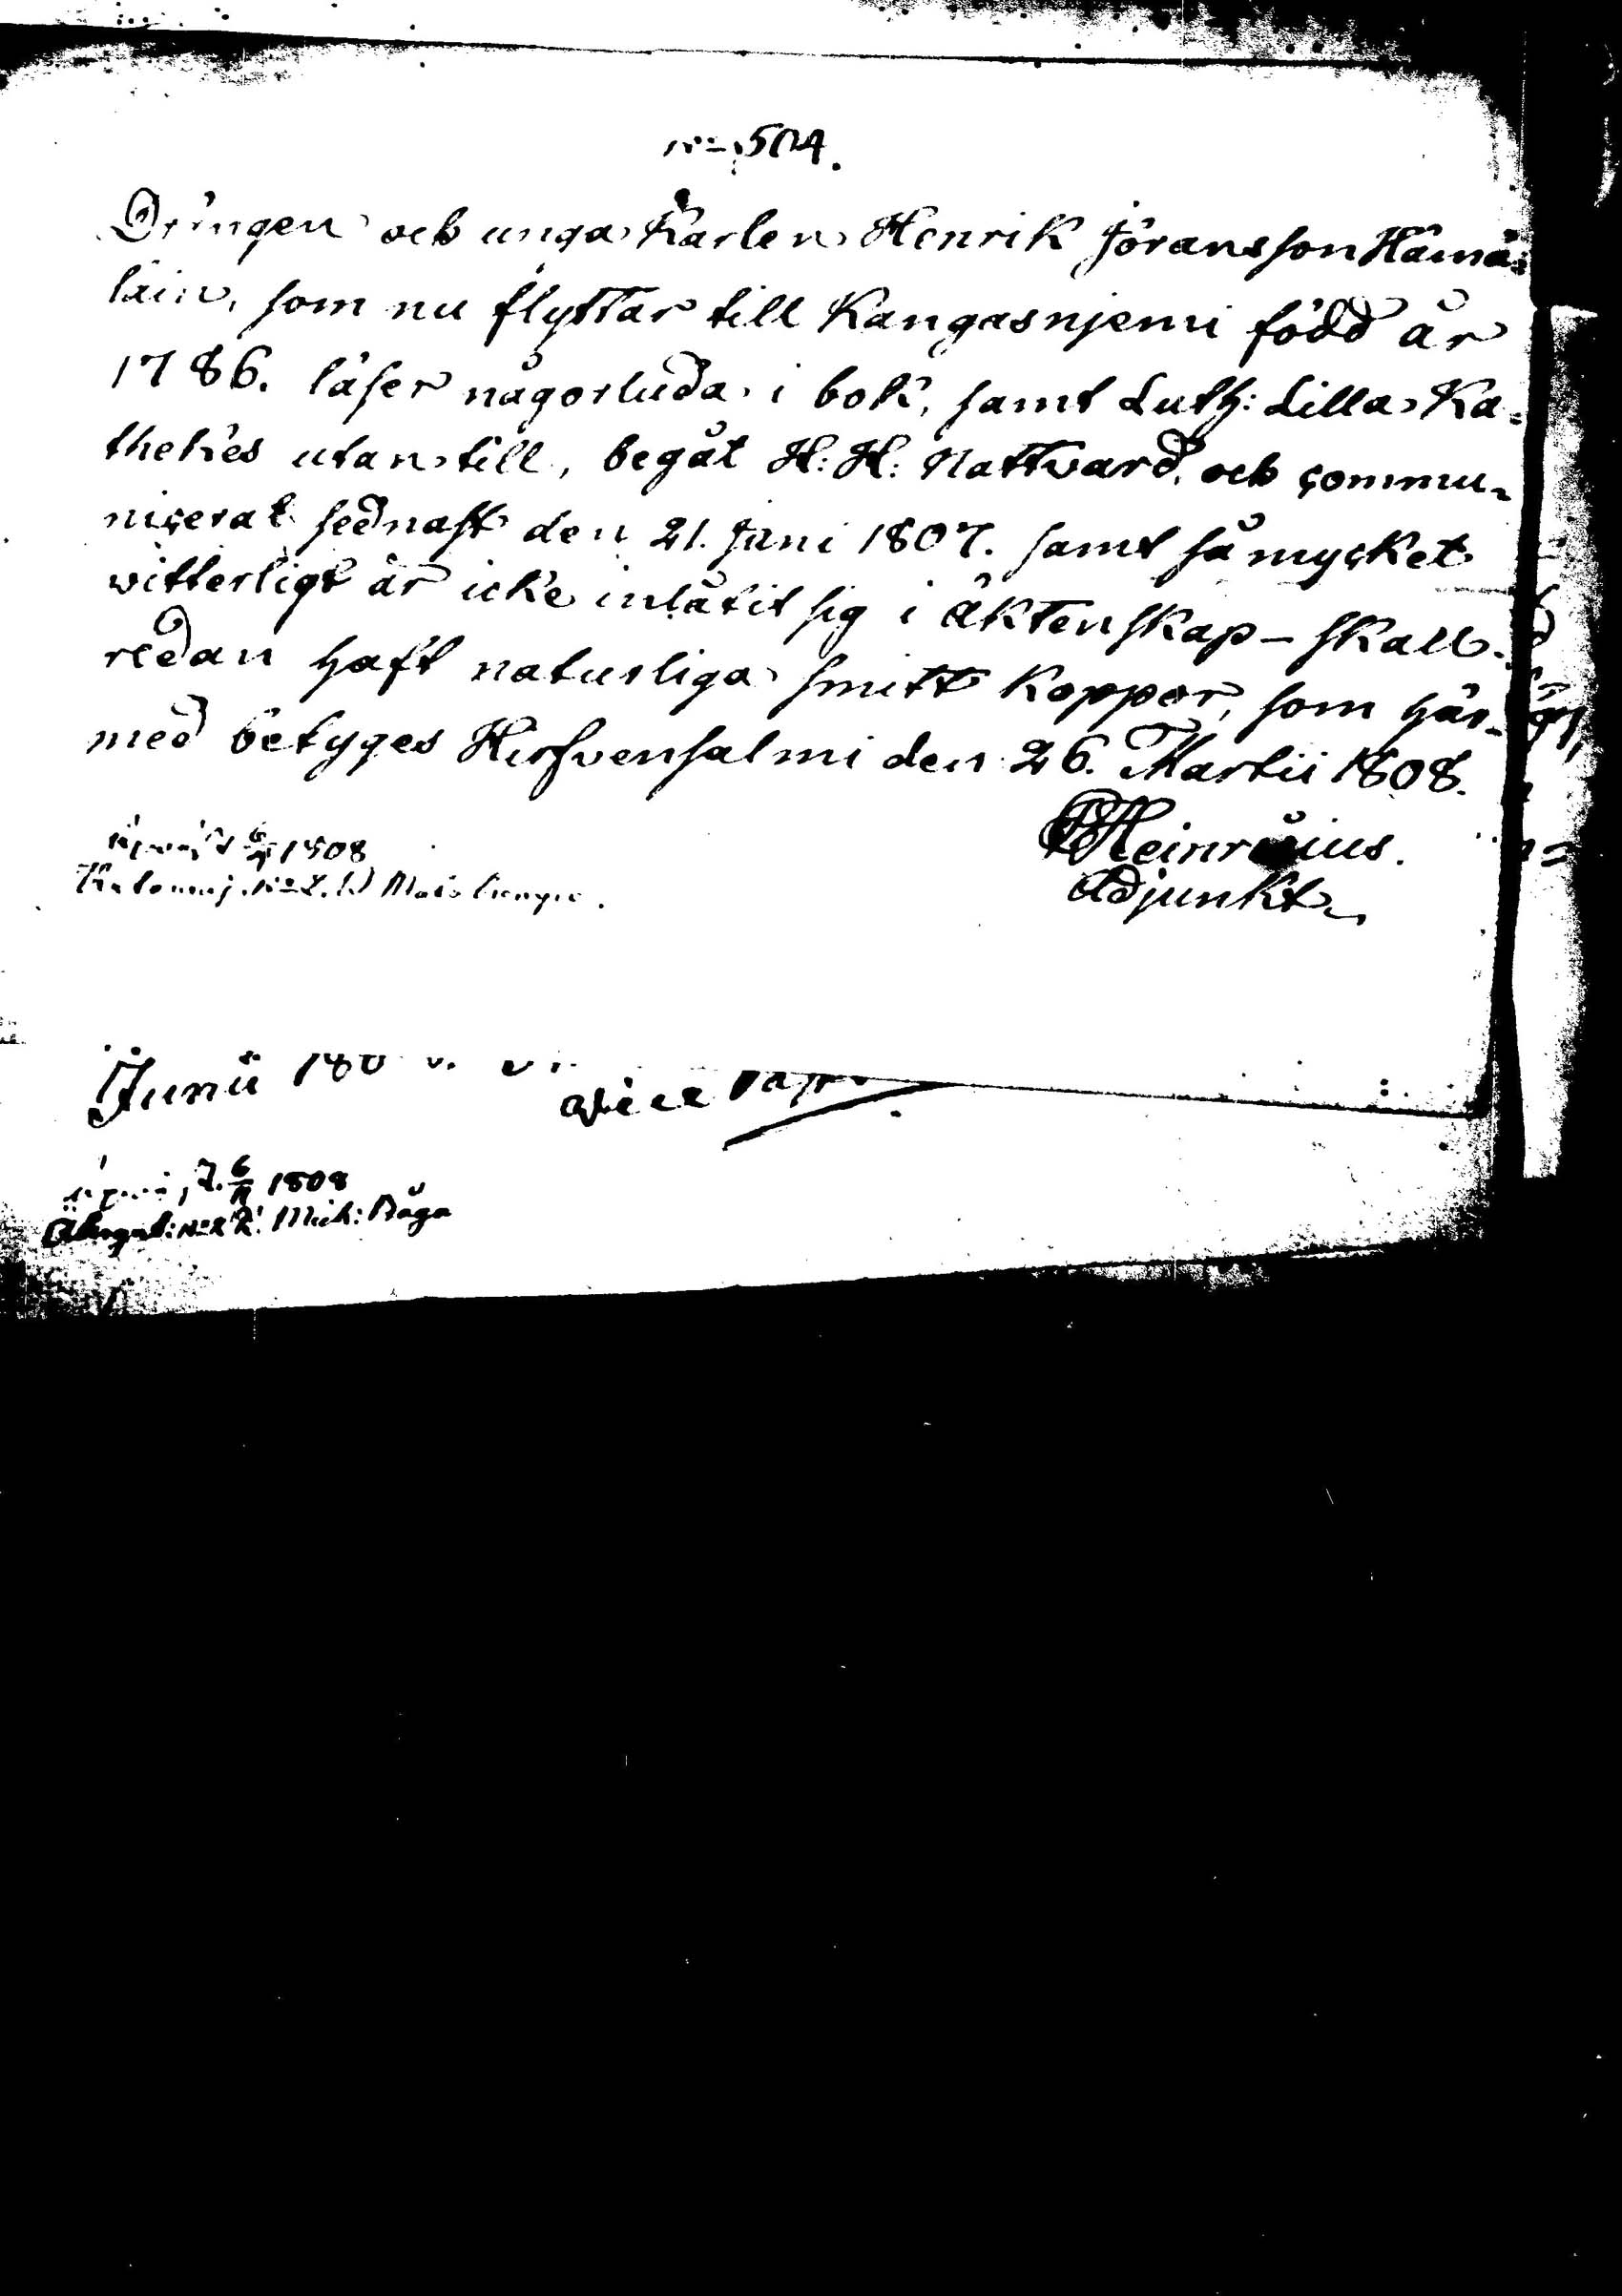 No 504.
Drängen och unga Karlen Henrik Jöransson Hämä-
läin, som nu flyttar till Kangasnjemi född år
1786. läser någorluda i bok, samt Luth: Lilla Ka-
thekes utantill, begåt H: H: Nattvard, och commu-
nicerat sednast den 21. Juni 1807. samt så mycket
witterligt är icke inlåtit sig i äktenskap - skall
redan haft naturliga smitt Koppor, som här-
med betyges Hirfvensalmi den 26. Martii 1808.
Heinricius.
Adjunkt
1808
Junii 180
vice
1808
Mich: